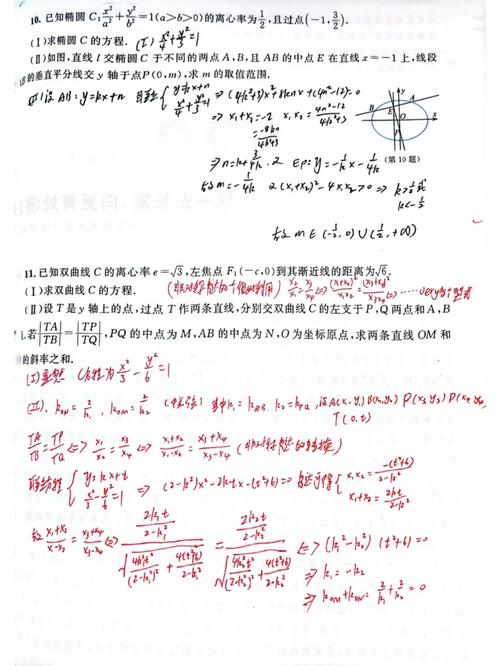 10. 已知椭圆 C: x²/a² + y²/b² = 1(a>b>0)的离心率为 1/2, 且过点(-1, 3/2).
(Ⅰ)求椭圆 C 的方程. (Ⅰ) x²/4 + y²/3 = 1
(Ⅱ)如图, 直线 l 交椭圆 C 于不同的两点 A, B, 且 AB 的中点 E 在直线 x=-1 上, 线段
AB 的垂直平分线交 y 轴于点 P(0,m), 求 m 的取值范围.
设 AB: y=kx+n 联立 { y=kx+n x²/4 + y²/3 = 1 ⇒ (4k²+3)x²+8knx+(4n²-12)=0
⇒ x₁+x₂=-2 x₁x₂ = (4n²-12)/(4k²+3)
= -8kn/(4k²+3)
A y B E O x P
⇒ n=k+3/(4k) EP: y=-1/k x - 1/(4k) (第 10 题)
故 m=-1/(4k) (x₁+x₂)²-4x₁x₂>0 ⇒ k>1/2 或
k<-1/2
故 m∈(-1/2, 0)∪(0, 1/2)
11. 已知双曲线 C 的离心率 e=√3, 左焦点 F₁(-c,0)到其渐近线的距离为√6.
(Ⅰ)求双曲线 C 的方程.
(Ⅱ)设 T 是 y 轴上的点, 过点 T 作两条直线, 分别交双曲线 C 的左支于 P, Q 两点和 A, B
若 |TA|/|TB| = |TP|/|TQ|, PQ 的中点为 M, AB 的中点为 N, O 为坐标原点, 求两条直线 OM 和
的斜率之和.
(Ⅰ) 显然 C方程为 x²/3 - y²/6 = 1
(Ⅱ). k_ON = 2/k₁, k_OM = 2/k₂ (中点弦) 其中 k₁=k_AB, k₂=k_PQ, 设A(x₁,y₁) B(x₂,y₂) P(x₃,y₃)
T(0,t)
TA/TB = TP/TQ ⇔ x₁/x₂ = x₃/x₄ ⇔ (x₁+x₂)/(x₁-x₂) = (x₃+x₄)/(x₃-x₄)
联立方程 { y=kx+t x²/3 - y²/6 = 1 ⇒ (2-k²)x²-2ktx-(t²+6)=0 { x₁x₂ = -(t²+6)/(2-k²)
x₁+x₂ = 2kt/(2-k²)
故 (x₁+x₂)/(x₁-x₂) = (x₃+x₄)/(x₃-x₄) ⇔ (2k₁t/(2-k₁²))/√(4k₁²t²/(2-k₁²)² + 4(t²+6)/(2-k₁²)) = (2k₂t/(2-k₂²))/√(4k₂²t²/(2-k₂²)² + 4(t²+6)/(2-k₂²)) ⇔ (k₁²-k₂²)(t²+6)=0
⇒ k₁=-k₂
⇒ k_OM+k_ON = 2/k₁ + 2/k₂ = 0